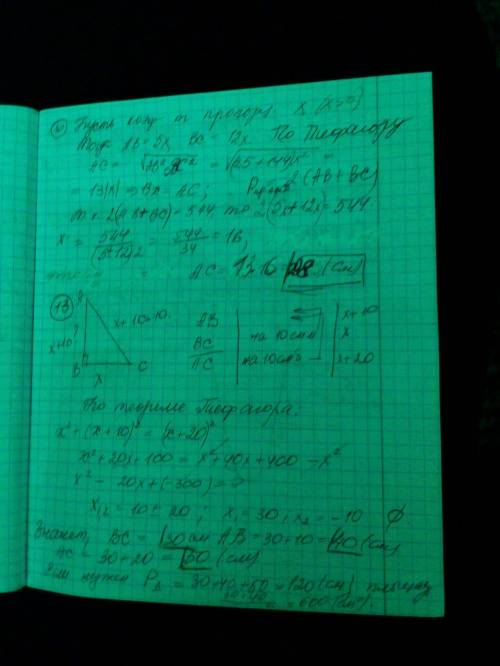 Пусть коэф. т прогорц. x (x>0)
Тогда AB = 5x, BC = 12x. По Теофагору
AC = = √(25+144)x²
= 13|x| = 13x = AC; P = 2(AB+BC)
т.к. 2(AB+BC) = 544, то 2(5x+12x) = 544
x = 544/(5+12)2 = 544/34 = 16;
AC = 13·16 = 208 (см)
13
A
x+10+10
x+10
B
x
C
AB
BC
AC
на 10см
на 10см
x+10
x
x+20
По теореме Пифагора:
x² + (x+10)² = (x+20)²
x² + 20x + 100 = x² + 40x + 400 - x²
x² - 20x + (-300) = 0
x₁,₂ = 10 ± 20; x₁ = 30; x₂ = -10 ∅.
Значит, BC = 30 см AB = 30+10 = 40 (см)
AC = 30+20 = 50 (см)
Если нужен P△ = 30+40+50 = 120 (см) площадь
= 600 (см²).